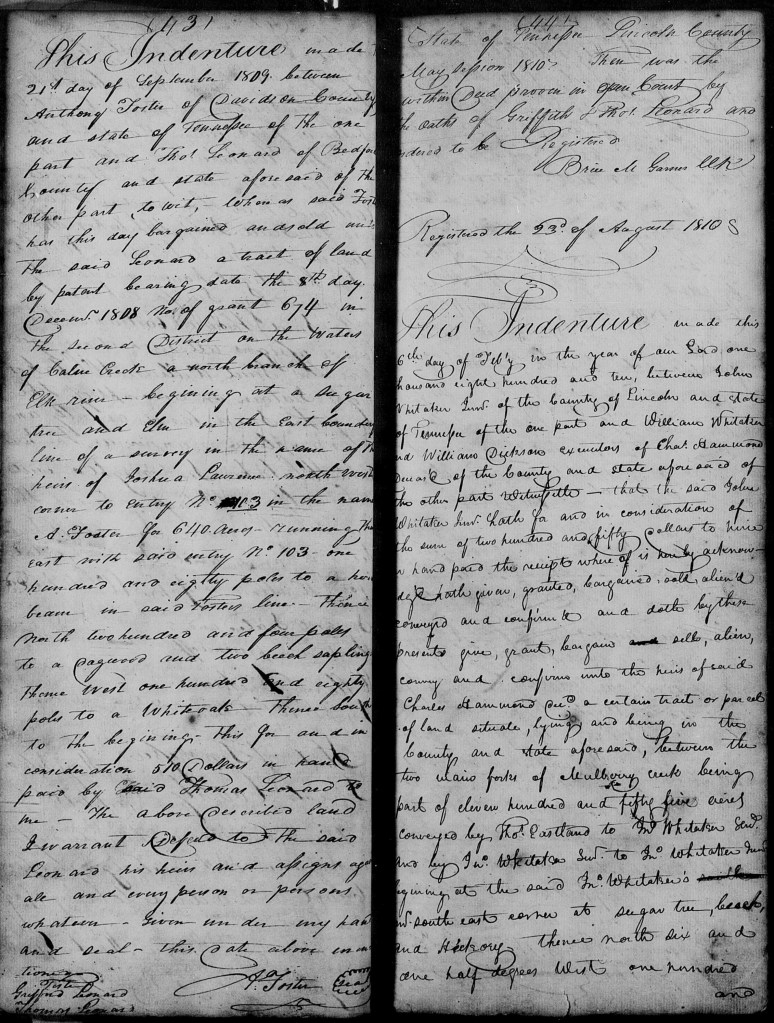 (43)
This Indenture made
21st day of September 1809 between
Anthony Foster of Davidson County
and state of Tennessee of the one
part and Thos. Leonard of Bedford
County and state aforesaid of the
other part, to wit, when as said Fost
has this day bargained and sold unto
the said Leonard a tract of land
by patent bearing date the 8th day
Decemr. 1808 No. of grant 674 in
the second District on the Waters
of Cane Creek a north branch of
Elk river - begining at a sugar
tree and Elm in the East boundary
line of a survey in the name of the
heirs of Joshua Lawrence north West
corner to Entry No. 103 in the name
A. Foster for 640 Acres - running th
east with said entry No. 103 - one
hundred and eighty poles to a horn
beam in said Fosters line - Thence
North two hundred and four poles
to a dagwood and two beach sapling
Thence West one hundred and eighty
poles to a Whiteoak - Thence South
to the begining - this for and in
consideration 510 Dollars in hand
paid by said Thomas Leonard to
me - The above described land
I warrant Defend to the said
Leonard his heirs and assigns aga
all and every person or persons
whatever - Given under my hand
and seal - this date above men
tioned
Teste
A. Foster
Griffith Leonard
Thomas Leonard
(44)
State of Tennessee Lincoln County
May Session 1810 Then was the
within Deed prooven in open Court by
the oaths of Griffith & Thos. Leonard and
ordered to be Registered
Brice M Garner Clk
Registered the 23d. of August 1810
This Indenture made this
6th day of Feb'y in the year of our Lord one
thousand eight hundred and ten, between John
Whitaker Junr. of the County of Lincoln and state
of Tennessee of the one part and William Whitaker
and William Dickson executors of Chas. Hammond
Deceas'd of the County and state aforesaid of
the other part Witnesseth - that the said John
Whitaker Junr. hath for and in consideration of
the sum of two hundred and fifty Dollars to him
in hand paid the receipt where of is hereby acknow-
dg'd hath given, granted, bargained, sold, alien'd
conveyed and confirm'd and doth by these
presents give, grant, bargain and sell, alien,
convey and confirm unto the heirs of said
Charles Hammond Decd. a certain tract or parcel
of land situate, lying and being in the
County and state aforesaid, between the
two main forks of Mulberry creek being
part of eleven hundred and fifty five acres
conveyed by Thos. Eastland to Jno. Whitaker Senr.
and by Jno. Whitaker Senr. to Jno. Whitaker Junr.
begining at the said Jno. Whitaker's
south east corner at sugar tree, beech,
and Hickory thence north six and
one half degrees West one hundred
and